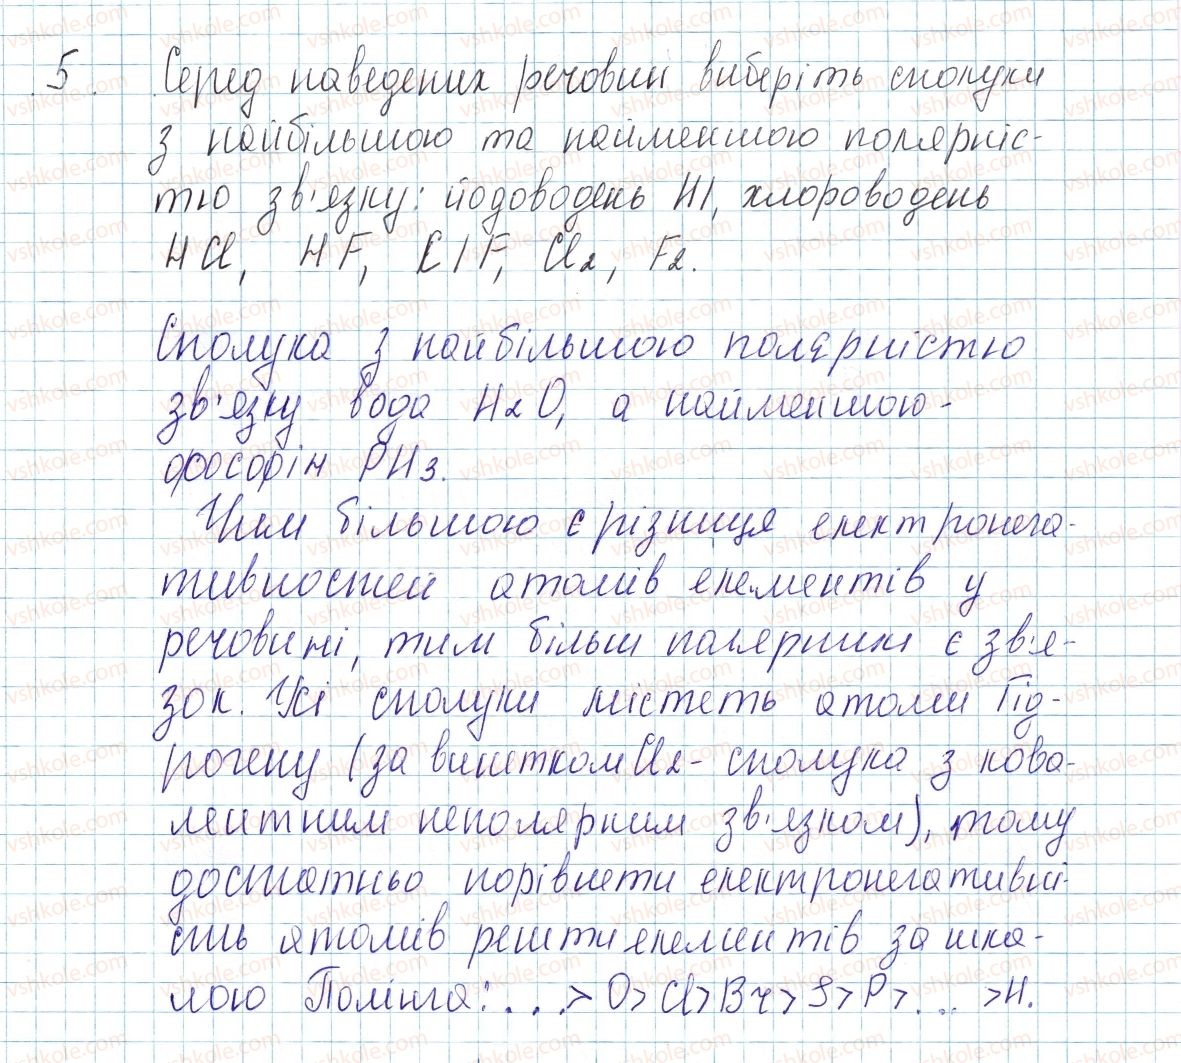 5. Серед наведених речовин виберіть сполуки
з найбільшою та найменшою полярніс-
тю зв'язку: йодоводень HI, хлороводень
HCl, HF, ClF, Cl2, F2.
Сполука з найбільшою полярністю
зв'язку вода H2O, а найменшою -
фосфін PH3.
Чим більшою є різниця електронега-
тивностей атомів елементів у
речовині, тим більш полярним є зв'я-
зок. Усі сполуки містеть атоми Гід-
рогену (за винятком Cl2 - сполука з кова-
лентним неполярним зв'язком), тому
достатньо порівняти електронегативні-
сть атомів решти елементів за шка-
лою Полінга: ...> O> Cl> Br> S> P> ... >H.